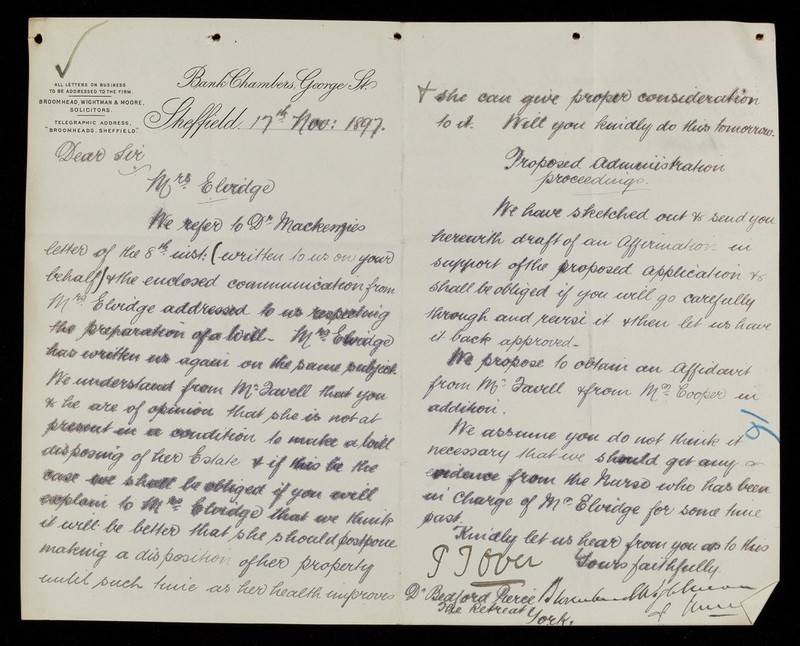 ALL LETTERS ON BUSINESS
TO BE ADDRESSED TO THE FIRM
BROOMHEAD, WIGHTMAN & MOORE,
SOLICITORS.
TELEGRAPHIC ADDRESS,
"BROOMHEADS, SHEFFIELD."
Bank Chambers, George St.
Sheffield. 17th Nov: 1897.
Dear Sir
Mrs Elvidge
We refer to Dr Mackenzies
letter of the 8th inst: (written to us on your
behalf) & the enclosed communication from
Mrs Elvidge addressed to us respecting
the preparation of a Will. Mrs Elvidge
has written us again on the same subject.
We understand from Mr Favell that you
& he are of opinion that she is not at
present in a condition to make a Will
disposing of her Estate & if this be the
case we shall be obliged if you will
explain to Mrs Elvidge that we think
it will be better that she should postpone
making a disposition of her property
until such time as her health improves
& she can give proper consideration
to it. Will you kindly do this tomorrow.
Proposed Administration
proceedings.
We have sketched out & send you
herewith draft of an Affirmation in
support of the proposed application &
shall be obliged if you will go carefully
through and revise it & then let us have
it back approved.
We propose to obtain an Affidavit
from Mr Favell & from Mrs Cooper in
addition.
We assume you do not think it
necessary that we should get any
evidence from the Nurse who has been
in charge of Mrs Elvidge for some time
past.
Kindly let us hear from you as to this
Yours faithfully
P T Over
Broomhead Wightman
& Moore
Dr Bedford Pierce
The Retreat
York.